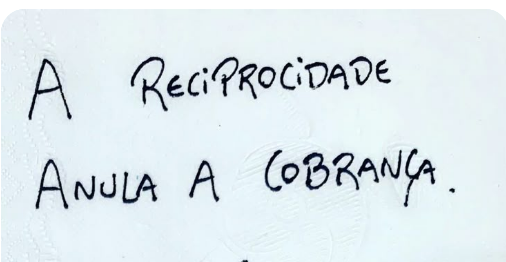 A RECIPROCIDADE
ANULA A COBRANÇA.